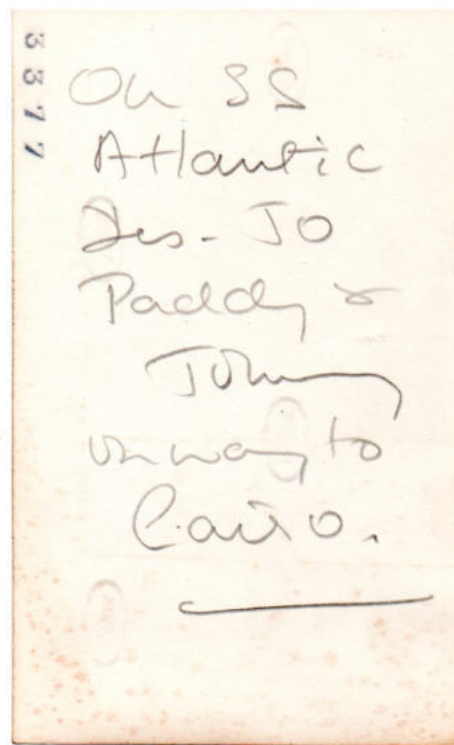 3377
On SS
Atlantic
Des - Jo
Paddy &
Johnny
on way to
Cairo.